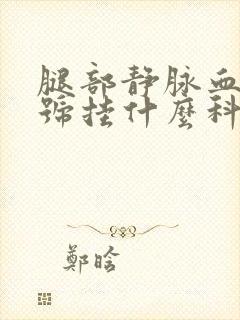 腿部静脉血
號挂什麼科
鄭晗